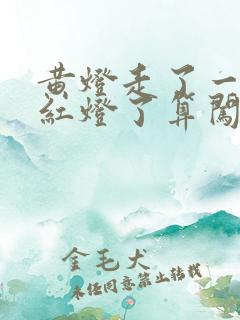 黄燈走了一
紅燈了算闖
金毛犬
未经同意禁止转载